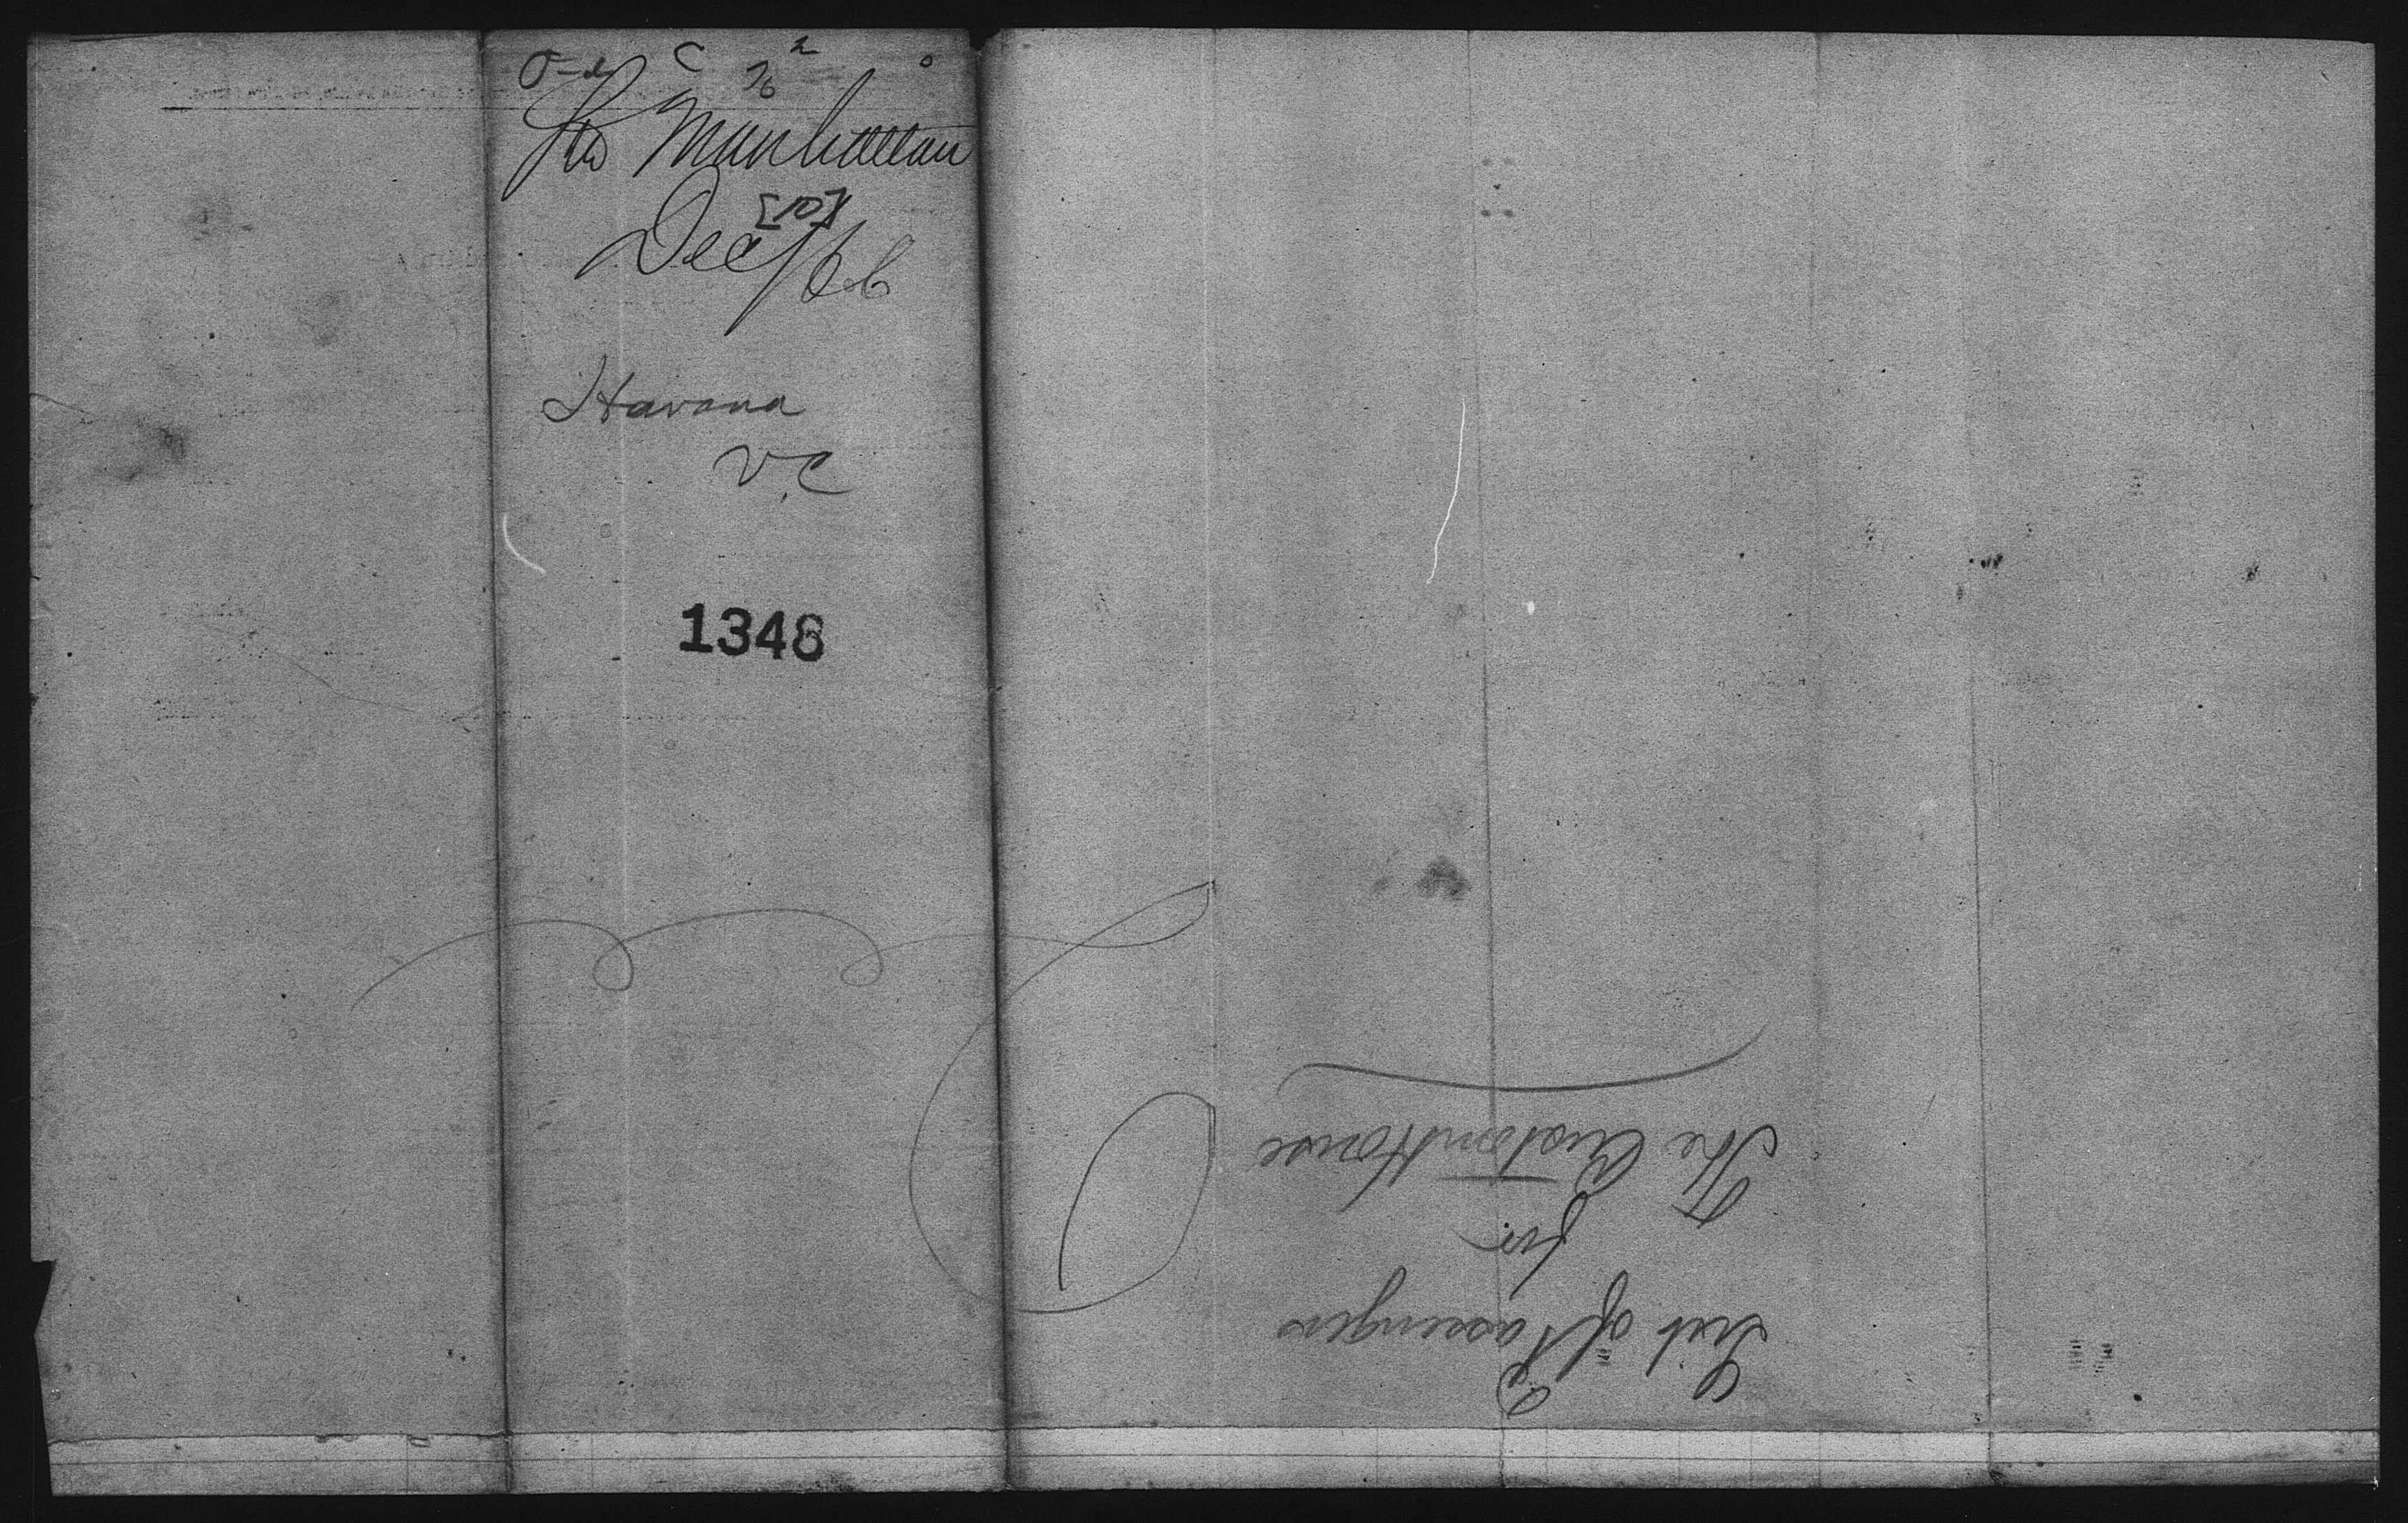 Str Manhattan
[10]
Dec/66
Havana
V.C
1348
List of Passengers
for
The Custom House